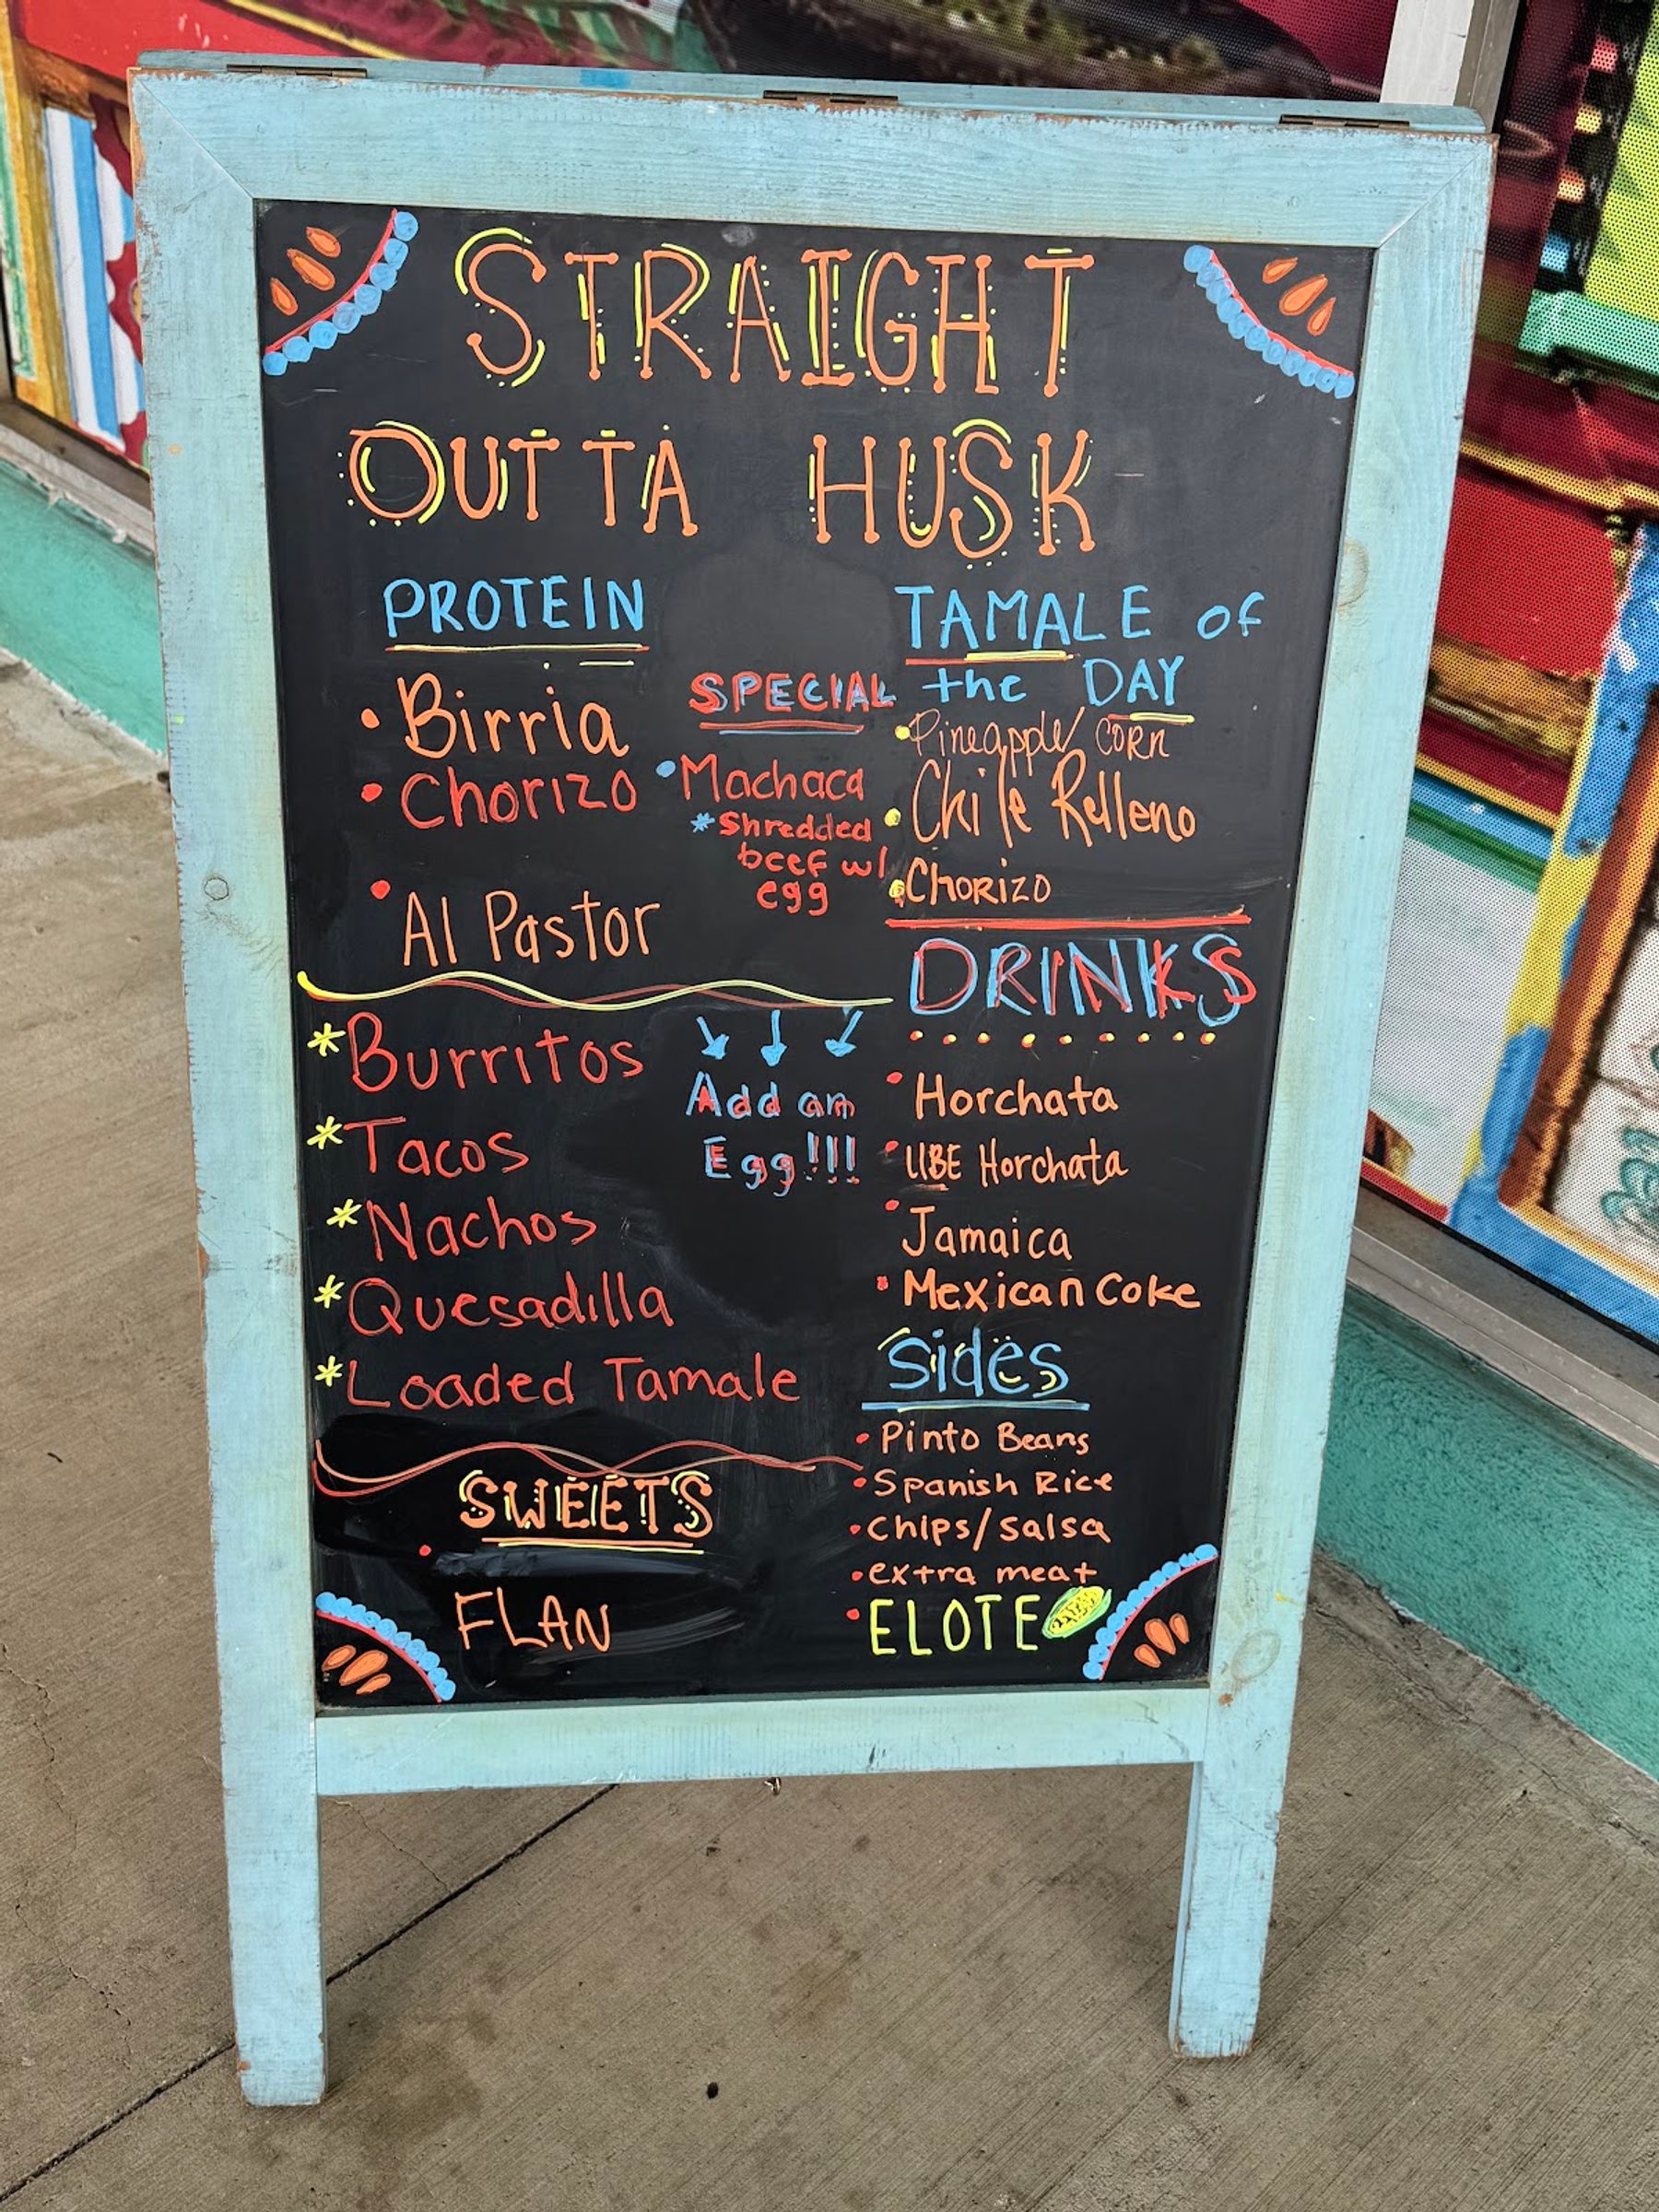 STRAIGHT
OUTTA HUSK
PROTEIN
• Birria
• Chorizo
• Al Pastor
SPECIAL
• Machaca
* Shredded
beef w/
egg
TAMALE of
the DAY
• Pineapple/ CORN
• Chile Relleno
• Chorizo
* Burritos
* Tacos
* Nachos
* Quesadilla
* Loaded Tamale
Add an
Egg!!!
DRINKS
• Horchata
• UBE Horchata
• Jamaica
• Mexican Coke
Sides
• Pinto Beans
• Spanish Rice
• Chips/Salsa
• extra meat
• ELOTE
SWEETS
• FLAN